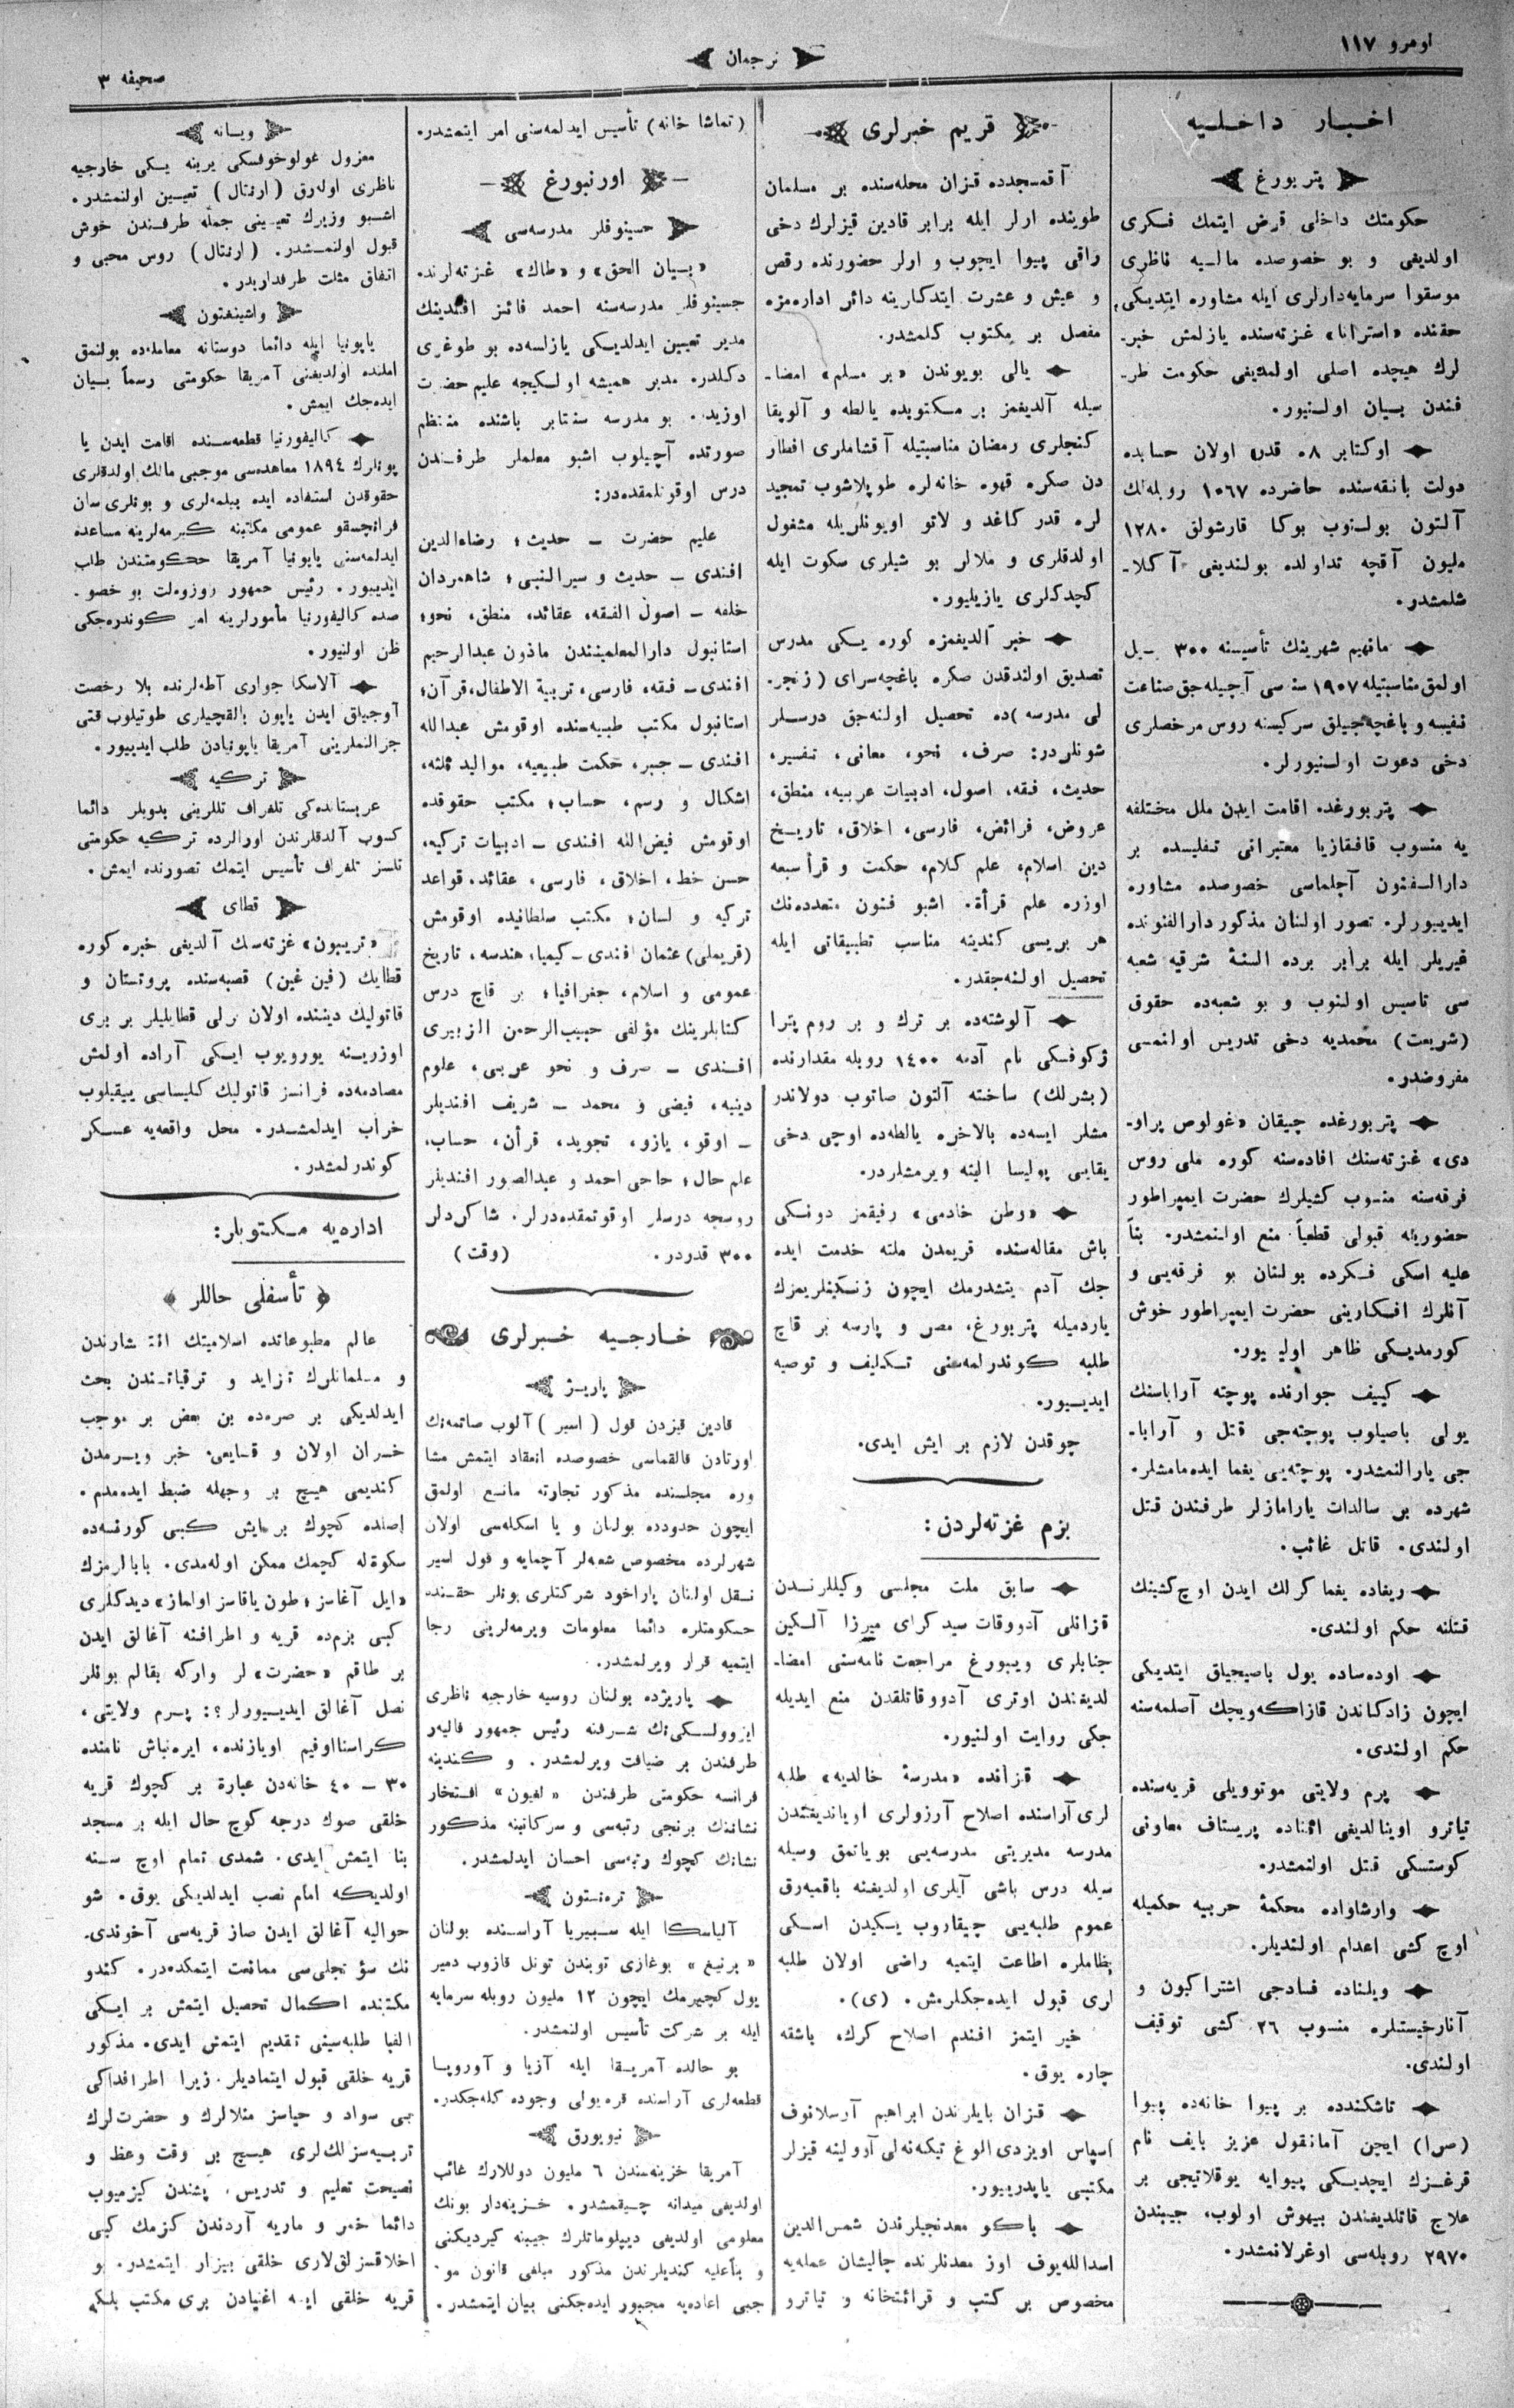 اومرو ۱۱۷
ترجمان
صحیفه ۳
اخبار داخلیه
پتربورغ
حکومتك داخلی قرض ایتمك فکری
اولدیغی و بو خصوصده مالیه ناظری
موسقوا سرمایه‌دارلری ایله مشاوره ایتدیکی
حقنده «استرانا» غزته‌سنده یازلمش خبر-
لرك هیچده اصلی اولمدیغی حکومت طر-
فندن بیان اولنیور.
اوکتابر ۰۸ قدر اولان حسابده
دولت بانقه‌سنده حاضرده ۱۰۶۷ روبله‌لك
آلتون بولنوب بوکا قارشولق ۱۲۸۰
ملیون آقچه تداولده بولندیغی آکلا-
شلمشدر.
مانهیم شهرینك تأسیسنه ۳۰۰ ییل
اولمق مناسبتیله ۱۹۰۷ سنه سی آچیله‌جق صناعت
نفیسه و باغچه‌جیلق سرکیسنه روس مرخصلری
دخی دعوت اولنیورلر.
پتربورغده اقامت ایدن ملل مختلفه
یه منسوب قافقازیا معتبرانی تفلیسده بر
دارالفنون آچلماسی خصوصده مشاوره
ایدیبورلر. تصور اولنان مذکور دارالفنونده
غیریلر ایله برابر برده السنۀ شرقیه شعبه
سی تاسیس اولنوب و بو شعبه‌ده حقوق
(شریعت) محمدیه دخی تدریس اولنمسی
مفروضدر.
پتربورغده چیقان «غولوص پراو-
دی» غزته‌سنك افاده‌سنه کوره ملی روس
فرقه‌سنه منسوب کشیلرك حضرت ایمپراطور
حضورینه قبولی قطعیاً منع اولنمشدر. بناً
علیه اسکی فکرده بولنان بو فرقه‌یی و
آنلرك افکارینی حضرت ایمپراطور خوش
کورمدیکی ظاهر اولیور.
کییف جوارنده پوچته آراباسنك
یولی باصیلوب پوچته‌جی قتل و آرابا-
جی یارالنمشدر. پوچته‌یی یغما ایده‌مامشلر.
شهرده بر سالدات یارامازلر طرفندن قتل
اولندی. قاتل غائب.
ریغاده یغما کرلك ایدن اوچ کشینك
قتلنه حکم اولندی.
اوده‌ساده یول باصیجیاق ایتدیکی
ایچون زادکاندن قازاکه‌ویچك آصلمه‌سنه
حکم اولندی.
پرم ولایتی موتوویلی قریه‌سنده
تیاترو اوینالدیغی اثناده پریستاف معاونی
کوستسکی قتل اولنمشدر.
وارشاواده محکمۀ حربیه حکمیله
اوچ کشی اعدام اولندیلر.
ویلناده فسادجی اشتراکیون و
آنارخیستلره منسوب ۲۶ کشی توقیف
اولندی.
تاشکندده بر پیوا خانه‌ده پیوا
(صرا) ایچن آمانقول عزیز بایف نام
قرغزك ایچدیکی پیوایه یوقلاتیجی بر
علاج قاتلدیغندن بیهوش اولوب، جیبندن
۲۹۷۰ روبله‌سی اوغرلانمشدر.
قریم خبرلری
آقمسجدده قزان محله‌سنده بر مسلمان
طوینده ارلر ایله برابر قادین قیزلرك دخی
راقی پیوا ایچوب و ارلر حضورنده رقص
و عیش و عشرت ایتدکارینه دائر اداره‌مزه
مفصل بر مکتوب کلمشدر.
یالی بویوندن «بر مسلم» امضا-
سیله آلدیغمز بر مکتوبده یالطه و آلوپقا
کنجلری رمضان مناسبتیله آقشاملری افطار
دن صکره قهوه خانه‌لره طوپلاشوب تمجید
لره قدر کاغد و لاتو اویونلریله مشغول
اولدقلری و ملالر بو شیلری سکوت ایله
کچدکلری یازیلیور.
خبر آلدیغمزه کوره یکی مدرس
تصدیق اولندقدن صکره باغچه‌سرای (زنجر-
لی مدرسه)ده تحصیل اولنه‌جق درسلر
شونلردر: صرف، نحو، معانی، تفسیر،
حدیث، فقه، اصول، ادبیات عربیه، منطق،
عروض، فرائض، فارسی، اخلاق، تاریخ
دین اسلام، علم کلام، حکمت و قرأ سبعه
اوزره علم قرأة. اشبو فنون متعدده‌نك
هر بریسی کندینه مناسب تطبیقاتی ایله
تحصیل اولنه‌جقدر.
آلوشته‌ده بر ترك و بر روم پترا
ژکوفسکی نام آدمه ۱٤۰۰ روبله مقدارنده
(بشرلك) ساخته آلتون صاتوب دولاندر
مشلر ایسه‌ده بالاخره یالطه‌ده اوچی دخی
یقایی پولیسا الینه ویرمشلردر.
«وطن خادمی» رفیقمز دونکی
باش مقاله‌سنده قریمدن ملته خدمت ایده
جك آدم یتشدرمك ایچون زنکینلریمزك
یاردمیله پتربورغ، مصر و پارسه بر قاچ
طلبه کوندرلمه‌سنی تکلیف و توصیه
ایدیبور.
چوقدن لازم بر ایش ایدی.
بزم غزته‌لردن:
سابق ملت مجلسی وکیللرندن
قزانلی آدووقات سید کرای میرزا آلکین
جنابلری ویبورغ مراجعت نامه‌سنی امضا-
لدیغندن اوتری آدووقاتلقدن منع ایدیله
جکی روایت اولنیور.
قزانده «مدرسۀ خالدیه» طلبه
لری آراسنده اصلاح آرزولری اویاندیغندن
مدرسه مدیریتی مدرسه‌یی بویاتمق وسیله
سیله درس باشی آیلری اولدیغنه باقمیه‌رق
عموم طلبه‌یی چیقاروب یکیدن اسکی
نظاملره اطاعت ایتمیه راضی اولان طلبه
لری قبول ایده‌جکلرمش. (ی).
خیر ایتمز افندم اصلاح کرك، باشقه
چاره یوق.
قزان بایلرندن ابراهیم آرسلانوف
اسپاس اویزدی الوغ تیکه‌نه‌لی آوولینه قیزلر
مکتبی یاپدریبور.
باکو معدنجیلرندن شمس‌الدین
اسدالله‌یوف اوز معدنلرنده چالیشان عمله‌یه
مخصوص بر کتب و قرائتخانه و تیاترو
(تماشا خانه) تأسیس ایدلمه‌سنی امر ایتمشدر.
اورنبورغ
حسینوفلر مدرسه‌سی
«بیان الحق» و «طاك» غزته‌لرنده
حسینوفلر مدرسه‌سنه احمد فائز افندینك
مدیر تعیین ایدلدیکی یازلسه‌ده بو طوغری
دکلدر. مدیر همیشه اولکیجه علیم حضرت
اوزیدر. بو مدرسه سنتابر باشنده منتظم
صورتده آچیلوب اشبو معلملر طرفندن
درس اوقونلمقده‌در:
علیم حضرت – حدیث؛ رضاءالدین
افندی – حدیث و سیرالنبی؛ شاهمردان
خلفه – اصول الفقه، عقائد، منطق، نحو؛
استانبول دارالمعلمیندن ماذون عبدالرحیم
افندی – فقه، فارسی، تربیة الاطفال، قرآن؛
استانبول مکتب طبیه‌سنده اوقومش عبدالله
افندی – جبر، حکمت طبیعیه، موالید ثلثه،
اشکال و رسم، حساب؛ مکتب حقوقده
اوقومش فیض‌الله افندی – ادبیات ترکیه،
حسن خط، اخلاق، فارسی، عقائد، قواعد
ترکیه و لسان؛ مکتب سلطانیده اوقومش
(قریملی) عثمان افندی – کیمیا، هندسه، تاریخ
عمومی و اسلام، جغرافیا؛ بر قاچ درس
کتابلرینك مؤلفی حبیب‌الرحمن الزبیری
افندی – صرف و نحو عربی، علوم
دینیه، فیضی و محمد – شریف افندیلر
– اوقو، یازو، تجوید، قرأن، حساب،
علم حال؛ حاجی احمد و عبدالصور افندیلر
روسجه درسلر اوقوتمقده‌درلر. شاکردلر
۳۰۰ قدردر. (وقت)
خارجیه خبرلری
پاریژ
قادین قیزدن قول (اسیر) آلوب صاتمه‌نك
اورتادن قالقماسی خصوصده انعقاد ایتمش مشا
وره مجلسنده مذکور تجارته مانع اولمق
ایچون حدودده بولنان و یا اسکله‌سی اولان
شهرلرده مخصوص شعبه‌لر آچمایه و قول اسیر
نقل اولنان پاراخود شرکتلری بونلر حقنده
حکومتلره دائما معلومات ویرمه‌لرینی رجا
ایتمیه قرار ویرلمشدر.
پاریژده بولنان روسیه خارجیه ناظری
ایزوولسکی‌نك شرفنه رئیس جمهور فالیه‌ر
طرفندن بر ضیافت ویرلمشدر. و کندینه
فرانسه حکومتی طرفندن «لغیون» افتخار
نشاننك برنجی رتبه‌سی و سرکاتبنه مذکور
نشانك کچوك رتبه‌سی احسان ایدلمشدر.
تره‌نستون
آلیاسکا ایله سیبیریا آراسنده بولنان
«برنیغ» بوغازی توبندن تونل قازوب دمیر
یول کچیرمك ایچون ۱۲ ملیون روبله سرمایه
ایله بر شرکت تأسیس اولنمشدر.
بو حالده آمریقا ایله آزیا و آوروپا
قطعه‌لری آراسنده قره یولی وجوده کله‌جکدر.
نیویورق
آمریقا خزینه‌سندن ٦ ملیون دوللارك غائب
اولدیغی میدانه چیقمشدر. خزینه‌دار بونك
معلومی اولدیغی دیپلوماتلرك جیبنه کیردیکنی
و بنأعلیه کندیلرندن مذکور مبلغی قانون مو-
جبی اعاده‌یه مجبور ایده‌جکنی بیان ایتمشدر.
ویانه
معزول غولوخوفسکی یرینه یکی خارجیه
ناظری اوله‌رق (ارنتال) تعیین اولنمشدر.
اشبو وزیرك تعیینی جمله طرفندن خوش
قبول اولنمشدر. (ارنتال) روس محبی و
اتفاق مثلث طرفداریدر.
واشینغتون
یاپونیا ایله دائما دوستانه معامله‌ده بولنمق
املنده اولدیغنی آمریقا حکومتی رسماً بیان
ایده‌جك ایمش.
کالیفورنیا قطعه‌سنده اقامت ایدن یا
پونلرك ۱۸۹٤ معاهده‌سی موجبی مالك اولدقلری
حقوقدن استفاده ایده بیلمه‌لری و بونلری سان
فرانچسقو عمومی مکتبنه کیرمه‌لرینه مساعده
ایدلمه‌سنی یاپونیا آمریقا حکومتندن طلب
ایدیبور. رئیس جمهور روزوه‌لت بو خصو-
صده کالیفورنیا مأمورلرینه امر کوندره‌جکی
ظن اولنیور.
آلاسکا جواری آطه‌لرنده بلا رخصت
آوجیلق ایدن یاپون بالقچیلری طوتیلوب قتی
جزالنملرینی آمریقا یاپونیادن طلب ایدیبور.
ترکیه
عربستانده‌کی تلغراف تللرینی بدویلر دائما
کسوب آلدقلرندن اورالرده ترکیه حکومتی
تلسز تلغراف تأسیس ایتمك تصورنده ایمش.
قطای
«تریبون» غزته‌سنك آلدیغی خبره کوره
قطایك (فین غین) قصبه‌سنده پروتستان و
قاتولیك دیننده اولان یرلی قطایلیلر بر بری
اوزرینه یورویوب ایکی آراده اولمش
مصادمه‌ده فرانسز قاتولیك کلیساسی ییقیلوب
خراب ایدلمشدر. محل واقعه‌یه عسکر
کوندرلمشدر.
اداره‌یه مکتوبلر:
تأسفلی حاللر
عالم مطبوعاتده اسلامیتك انتشارندن
و مسلمانلرك تزاید و ترقیاتندن بحث
ایدلدیکی بر صره‌ده بن بعض بر موجب
خسران اولان و قایعی خبر ویرمدن
کندیمی هیچ بر وجهله ضبط ایده‌مدم.
اصلده کچوك بر ایش کبی کورنسه‌ده
سکوتله کچمك ممکن اوله‌مدی. بابالرمزك
«ایل آغاسز؛ طون یاقاسز اولماز» دیدکلری
کبی بزم‌ده قریه و اطرافنه آغالق ایدن
بر طاقم «حضرت»لر وارکه بقالم بونلر
نصل آغالق ایدیبورلر؟: پرم ولایتی،
کراسنااوفیم اویازنده، ایره‌نباش نامنده
۳۰ – ٤۰ خانه‌دن عبارة بر کچوك قریه
خلقی صوك درجه کوچ حال ایله بر مسجد
بنا ایتمش ایدی. شمدی تمام اوچ سنه
اولدیکه امام نصب ایدلدیکی یوق. شو
حوالیه آغالق ایدن صاز قریه‌سی آخوندی-
نك سؤ تجلی‌سی ممانعت ایتمکده‌در. کندو
مکتبنده اکمال تحصیل ایتمش بر ایکی
الفبا طلبه‌سینی تقدیم ایتمش ایدی. مذکور
قریه خلقی قبول ایتمادیلر. زیرا اطرافداکی
بی سواد و حیاسز منلالرك و حضرت‌لرك
تربیه‌سزلك‌لری، هیچ بر وقت وعظ و
نصیحت تعلیم و تدریس، پشندن کیزمیوب
دائما خمر و ماریه آردندن کزمك کبی
اخلاقسزلق‌لاری خلقی بیزار ایتمشدر. و
قریه خلقی ایسه اغنیادن بری مکتب بلکه